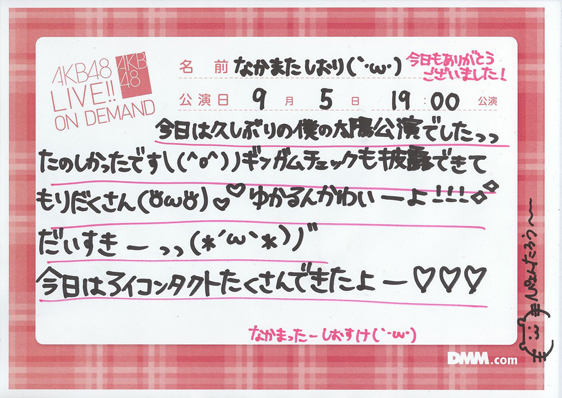 AKB48
LIVE!!
ON DEMAND
AKB
48
名前 なかまたしおり(`･ω･)
今日もありがとう
ございました!
公演日 9月 5日 19:00 公演
今日は久しぶりの僕の太陽公演でしたっっ
たのしかったです\(^o^))ギンガムチェックも披露できて
もりだくさん(ಠωಠ)♡♡ゆかるんかわいーよ!!!◇◇
だいすきーっっ(*´ω`*)ﾉ"
今日はろイコンタクトたくさんできたよー♡♡♡
なかまったーしおすけ(`･ω･)
DMM.com